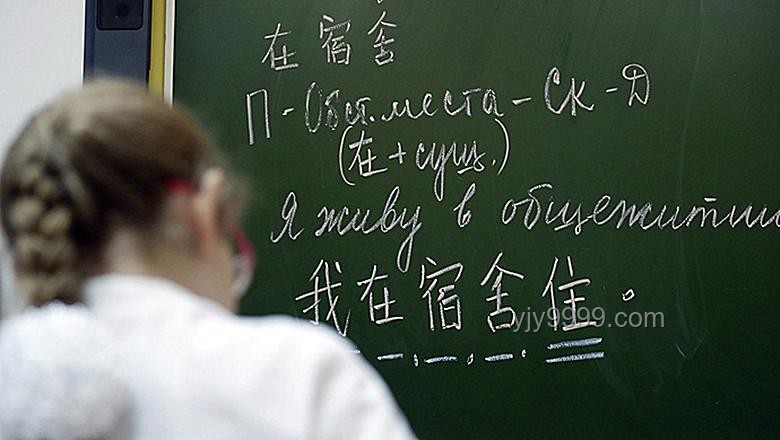 在宿舍
П - Обст. места - Ск - Д
(在 + сущ.)
Я живу в общежитии
我在宿舍住。
yjy9999.com